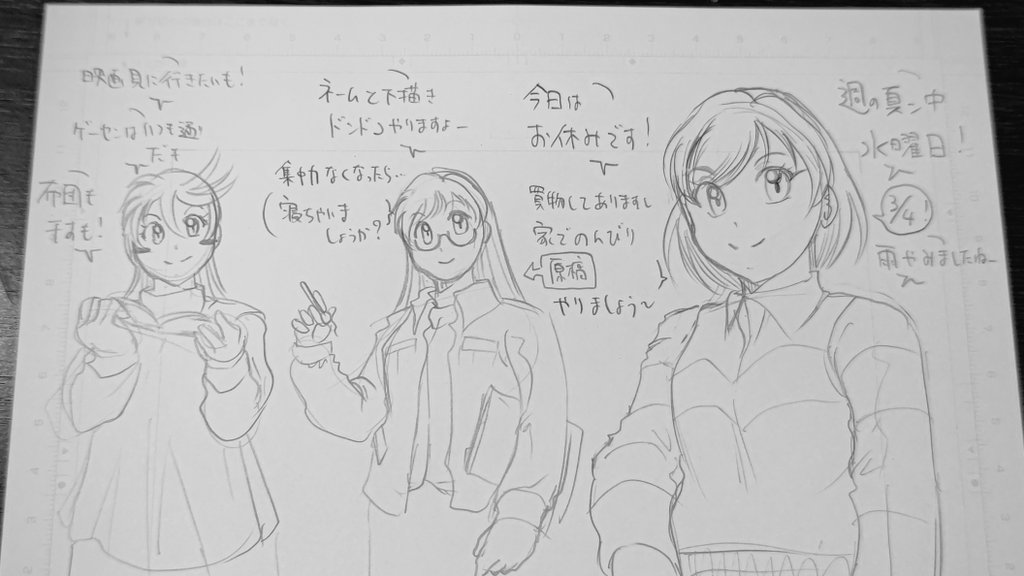 週の真ン中
水曜日!
3/4!
雨やみましたねー
今日は
お休みです!
買物してありますし
家でのんびり
原稿
やりましょう〜
ネームと下描き
ドンドンやりますよー
集中力なくなったら…
(寝ちゃいま
しょうか?)
映画見に行きたいも!
ゲーセンはいつも通り
だも
布団も
干すも!